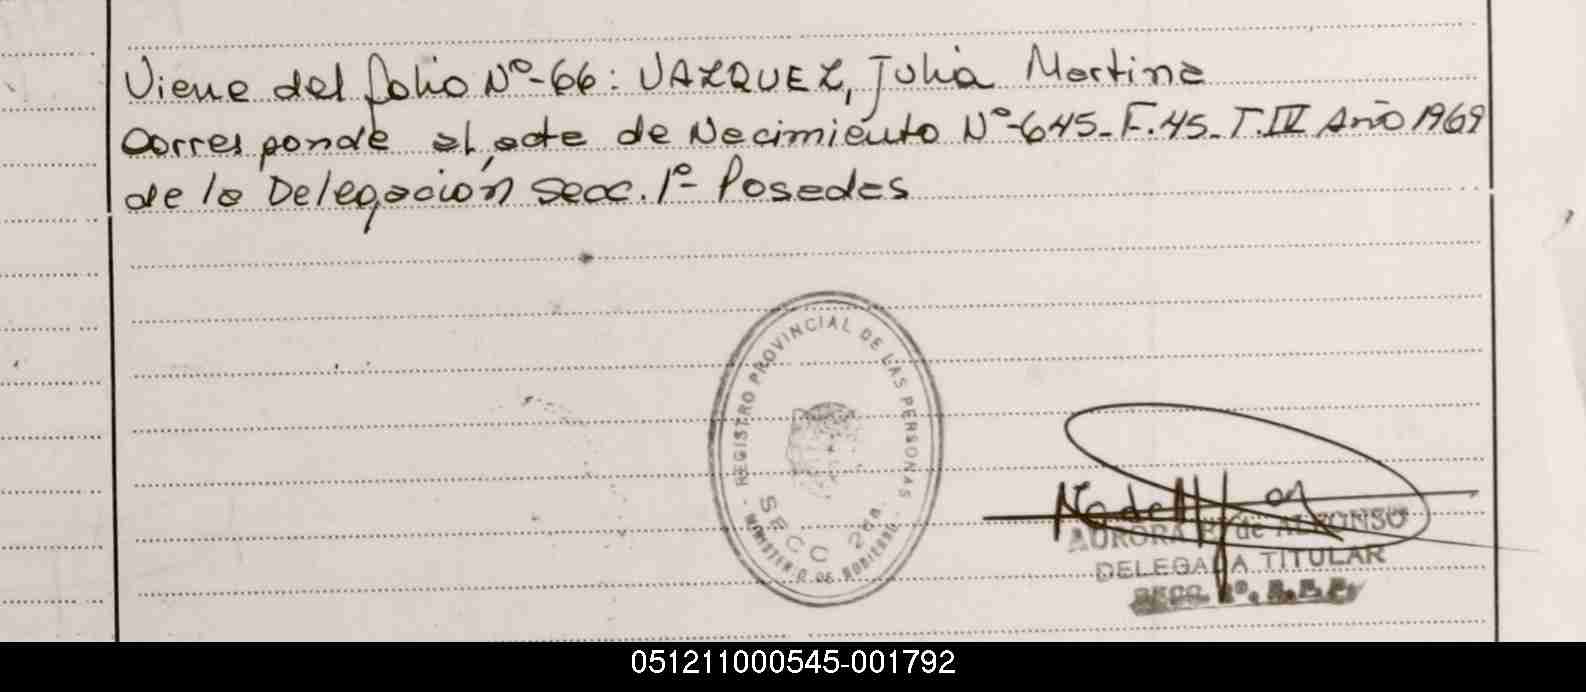 Viene del folio Nº-66: VAZQUEZ, Julia Martina
Corresponde al acta de Nacimiento Nº-645-F.45-T.IV Año 1969
de la Delegación Secc. 1º- Posadas
REGISTRO PROVINCIAL DE LAS PERSONAS
SECC 2da.
MINISTERIO DE GOBIERNO
AURORA de ALFONSO
DELEGADA TITULAR
051211000545-001792